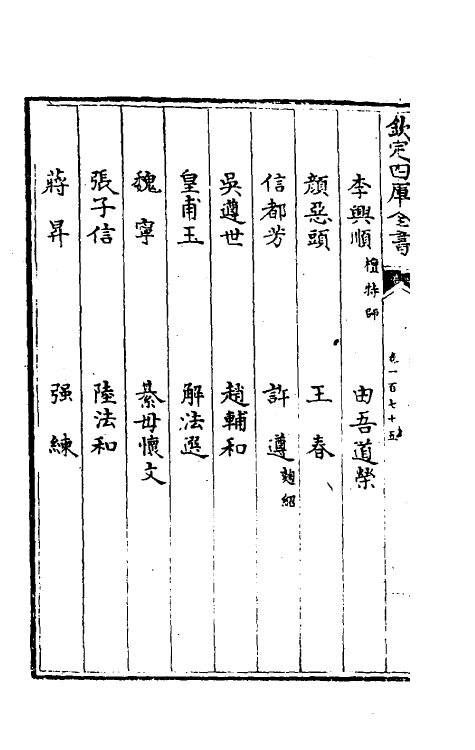 欽定四庫全書
卷一百七十五
李興順檀特師 由吾道榮
顏惡頭 王春
信都芳 許遵麹紹
吳遵世 趙輔和
皇甫玉 解法選
魏寧 綦毋懷文
張子信 陸法和
蔣昇 强練